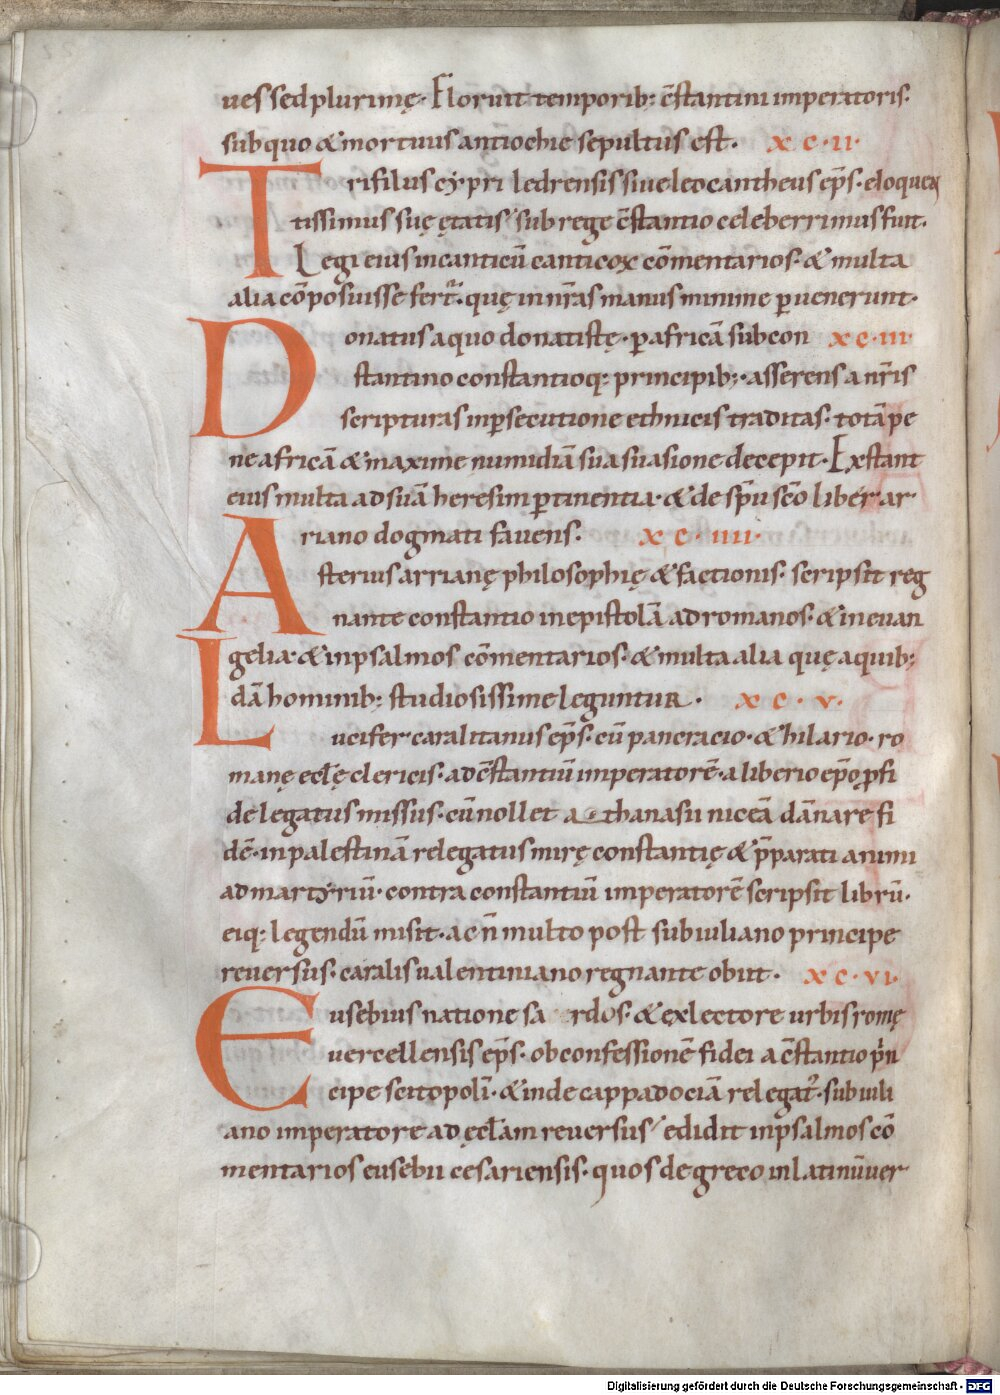 ues sed plurimę. Floruit temporib: c̄stantini imperatoris.
sub quo & mortuus antiochię sepultus est. x c. ii.
Trifilus cẏpri ledrensis siue leocantheus ep̄s. eloquen
tissimus suę ętatis. sub rege c̄stantio celeberrimus fuit.
Legi eius in canticū canticoꝝ cōmentarios. & multa
alia cōposuisse fert̄. quę in nr̄as manus minime ꝑuenerunt.
Donatus a quo donatistę. ꝑ africā sub con x c. iii.
stantino constantioq: principib;. asserens a nr̄is
scripturas in ꝑsecutione ethnicis traditas. totā pe
ne africā & maxime numidiā sua suasione decepit. Exstant
eius multa ad suā heresim ꝑtinentia. & de sp̄u sc̄o liber ar
riano dogmati fauens. x c. iiii.
Asterius arrianę philosophię & factionis. scripsit reg
nante constantio in epistolā ad romanos. & in euan
gelia. & in psalmos cōmentarios. & multa alia quę a quib;
dā hominib: studiosissime leguntur. x c. v.
Lucifer caralitanus ep̄s. cū pancracio. & hilario. ro
manę eccl̄ę clericis. ad c̄stantiū imperatorē. a liberio ep̄o ꝓ fi
de legatus missus. cū nollet a thanasii niceā dānare fi
dē. in palestinā relegatus mirę constantię & p̄parati animi
ad martẏriū. contra constantiū imperatorē scripsit librū.
eiq: legendū misit. ac n̄ multo post sub iuliano principe
reuersus. caralis ualentiniano regnante obiit. x c. vi.
Eusebius natione sa rdos. & ex lectore urbis romę
uercellensis ep̄s. ob confessionē fidei a c̄stantio prin
cipe scitopolī. & inde cappadociā relegat̄. sub iuli
ano imperatore ad ęccl̄am reuersus. edidit in psalmos cō
mentarios eusebii cesariensis. quos de greco in latinū uer
Digitalisierung gefördert durch die Deutsche Forschungsgemeinschaft - DFG